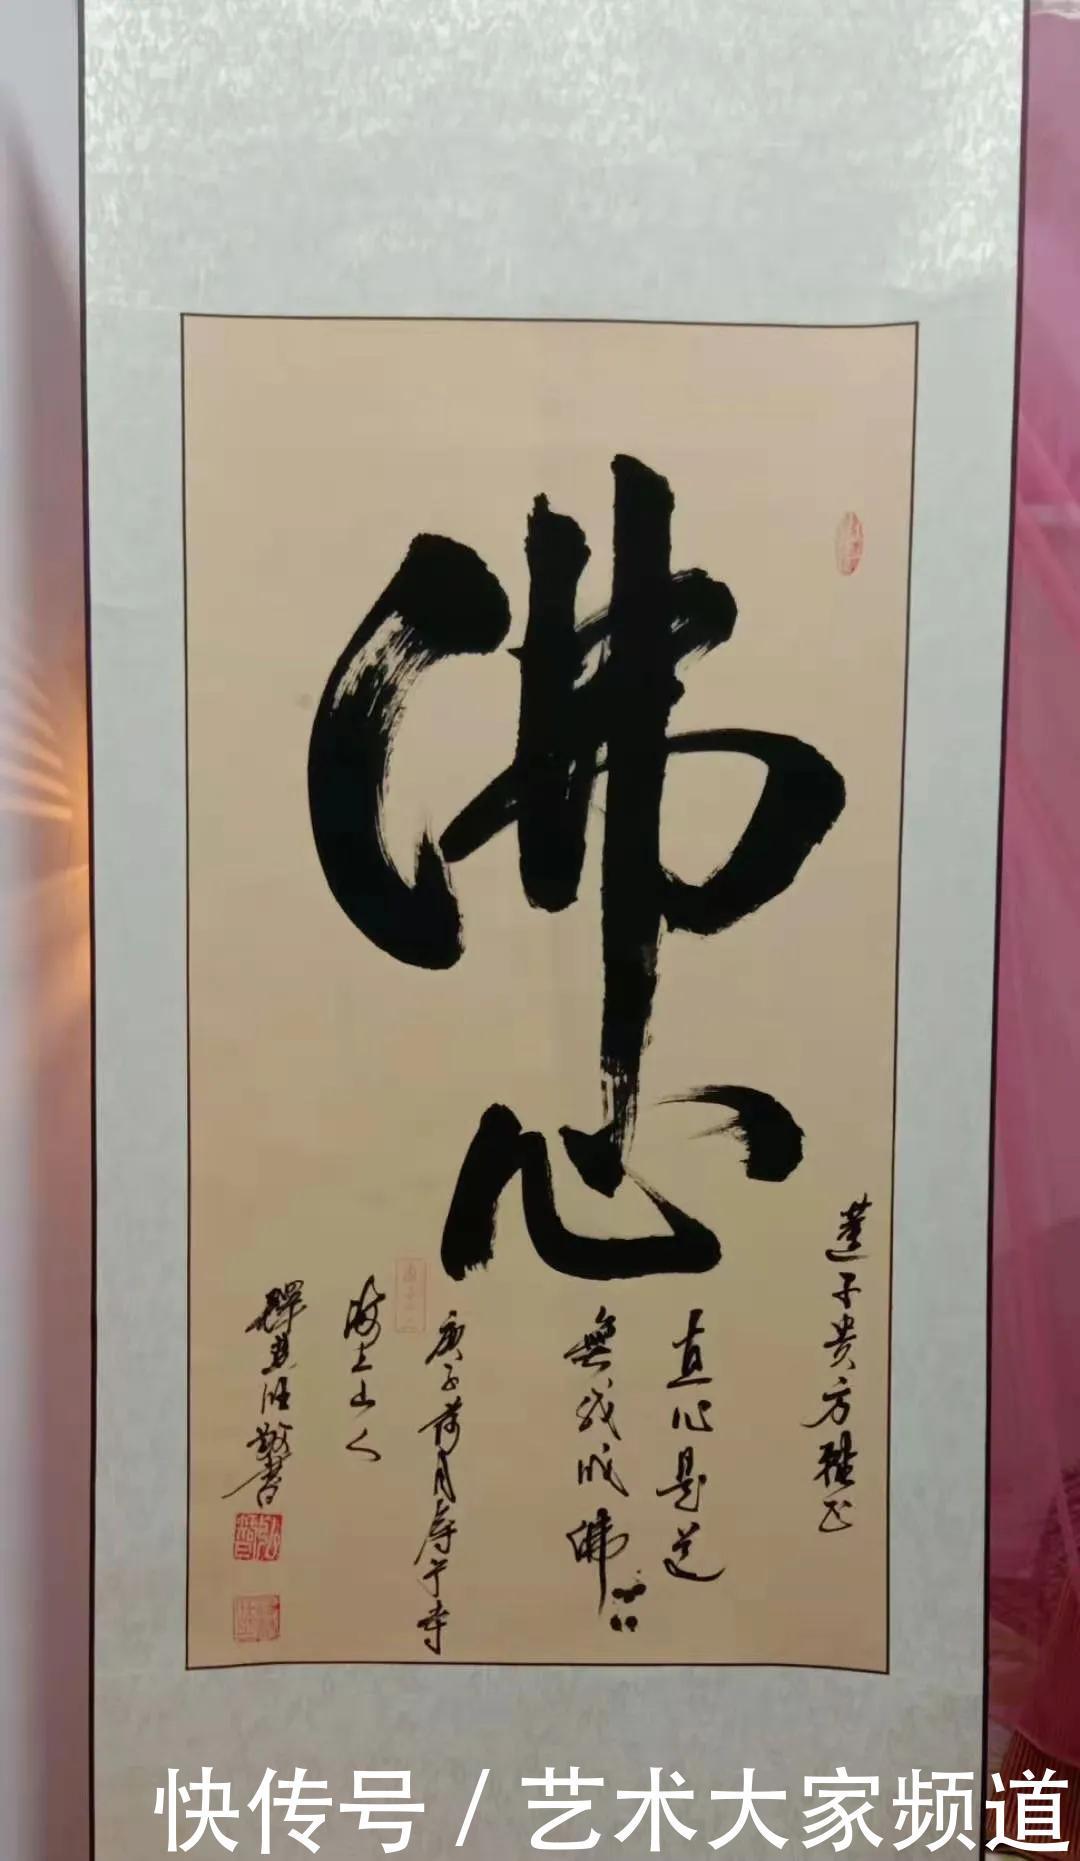 佛心
蓮子贵方雅正
直心是道
無我成佛
庚子荷月寿宁寺
海上山人
釋慧旺敬書
快传号 / 艺术大家频道